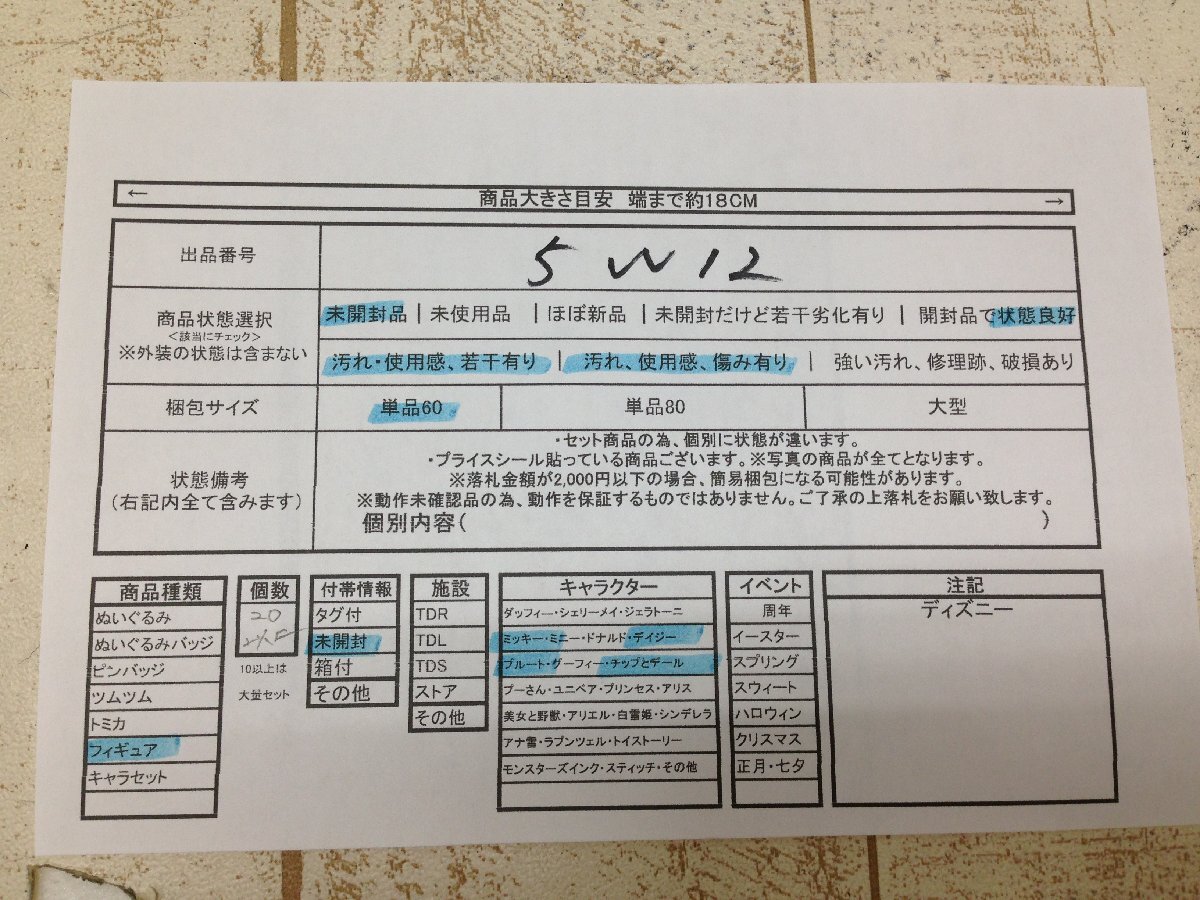 ← 商品大きさ目安 端まで約18CM →
出品番号 5W12
商品状態選択
<該当にチェック>
※外装の状態は含まない
未開封品 | 未使用品 | ほぼ新品 | 未開封だけど若干劣化有り | 開封品で状態良好
汚れ・使用感、若干有り | 汚れ、使用感、傷み有り | 強い汚れ、修理跡、破損あり
梱包サイズ 単品60 単品80 大型
状態備考
(右記内全て含みます)
・セット商品の為、個別に状態が違います。
・プライスシール貼っている商品ございます。※写真の商品が全てとなります。
※落札金額が2,000円以下の場合、簡易梱包になる可能性があります。
※動作未確認品の為、動作を保証するものではありません。ご了承の上落札をお願い致します。
個別内容( )
商品種類
ぬいぐるみ
ぬいぐるみバッジ
ピンバッジ
ツムツム
トミカ
フィギュア
キャラセット
個数
20
10以上は
大量セット
付帯情報
タグ付
未開封
箱付
その他
施設
TDR
TDL
TDS
ストア
その他
キャラクター
ダッフィー・シェリーメイ・ジェラトーニ
ミッキー・ミニー・ドナルド・デイジー
プルート・グーフィー・チップとデール
プーさん・ユニベア・プリンセス・アリス
美女と野獣・アリエル・白雪姫・シンデレラ
アナ雪・ラプンツェル・トイストーリー
モンスターズインク・スティッチ・その他
イベント
周年
イースター
スプリング
スウィート
ハロウィン
クリスマス
正月・七夕
注記
ディズニー